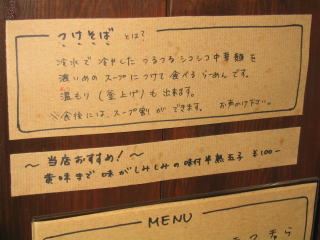 つけそば とは?
冷水で冷やしたつるつるシコシコ中華麺を
濃いめのスープにつけて食べるらーめんです。
温もり(釜上げ)も出来ます。
※食後には、スープ割りができます。 お声かけ下さい。
~当店おすすめ!~
黄味まで味がしみしみの味付半熟玉子 ¥100-
MENU